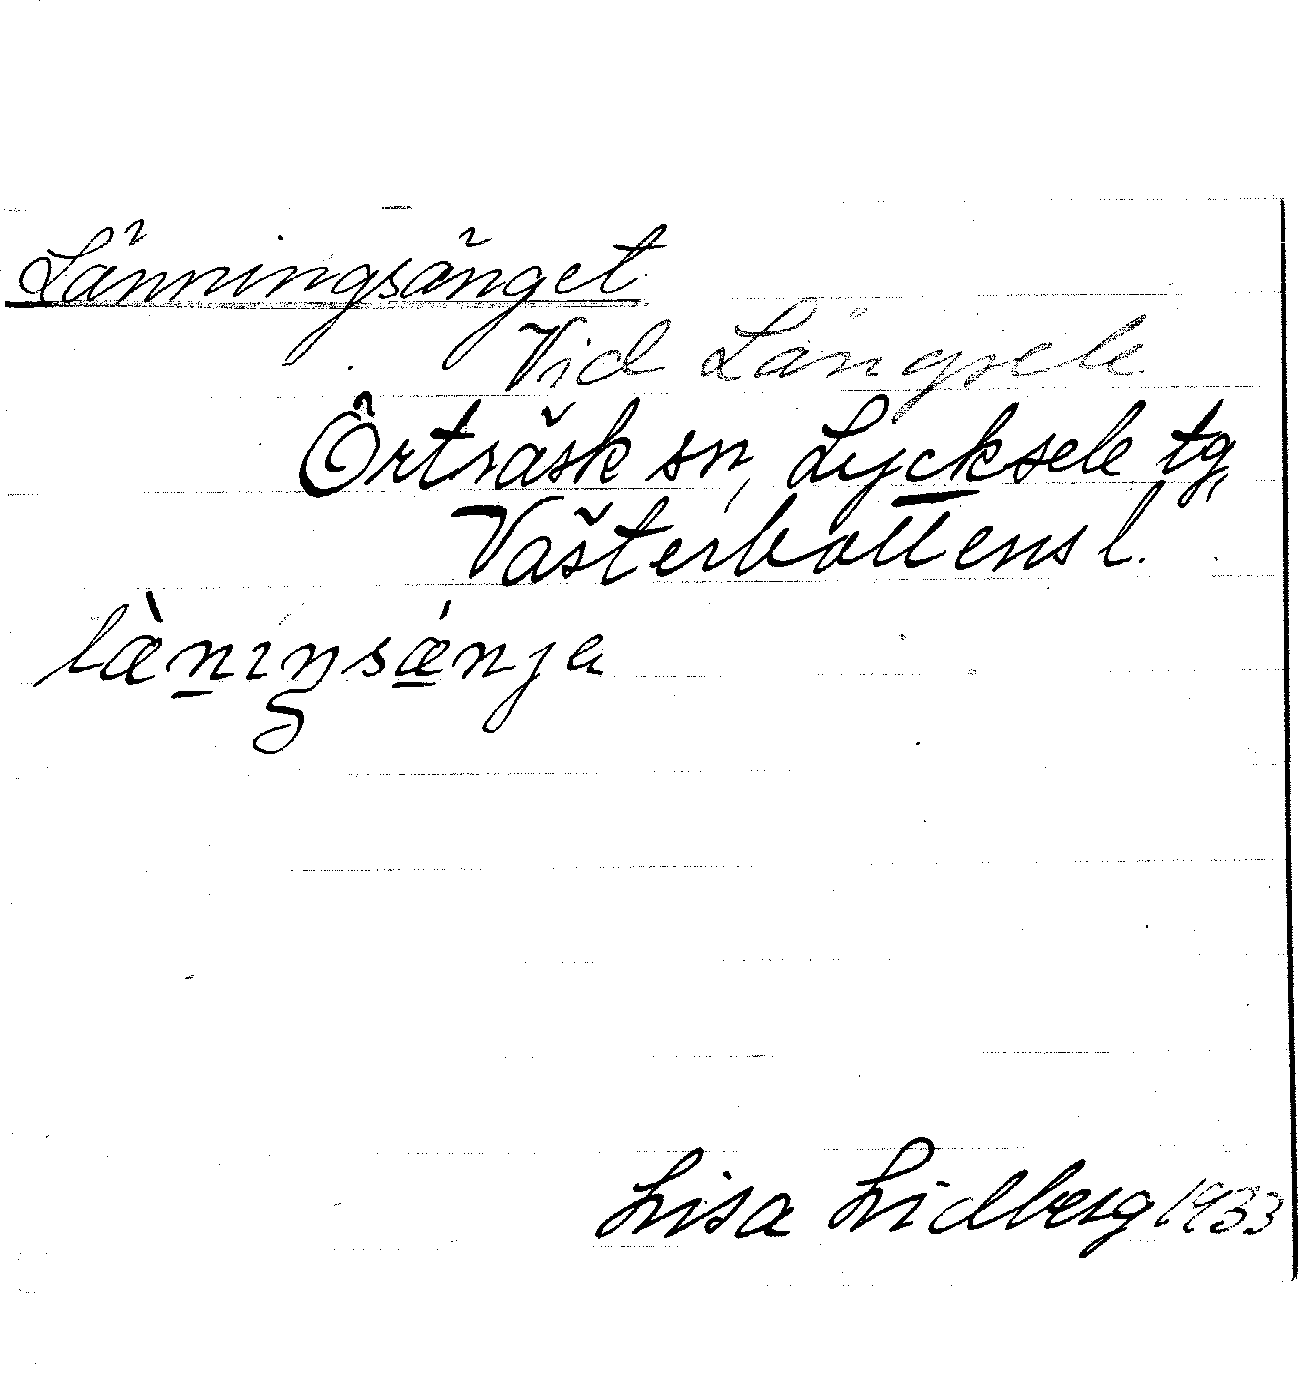 Länningsänget
Vid Långsele
Örträsk sn, Lycksele tg,
Västerbottens l.
lὰ̀n̲ıŋsǽ̲nja
Lisa Lidberg 1933